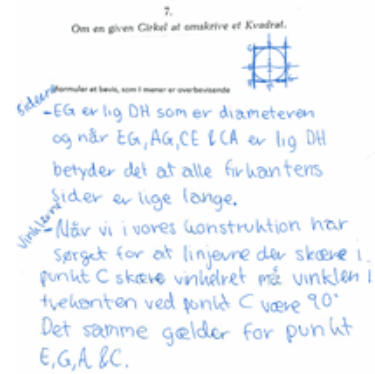 7.
Om en given Cirkel at omskrive et Kvadrat.
Formuler et bevis, som I mener er overbevisende
Siderne
- EG er lig DH som er diameteren
og når EG, AG, CE & CA er lig DH
betyder det at alle firkantens
sider er lige lange.
Vinklerne
- Når vi i vores konstruktion har
sørget for at linjerne der skære i
punkt C skære vinkelret må vinklen i
trekanten ved punkt C være 90°
Det samme gælder for punkt
E, G, A & C.